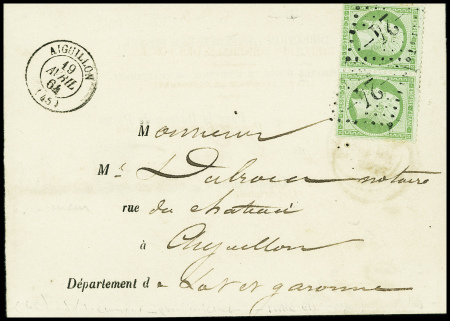 AIGUILLON
19
AVRIL
64
(45)
24
24
Monsieur
Mr notaire
rue du chateau
à Aiguillon
Département d Lot et garonne